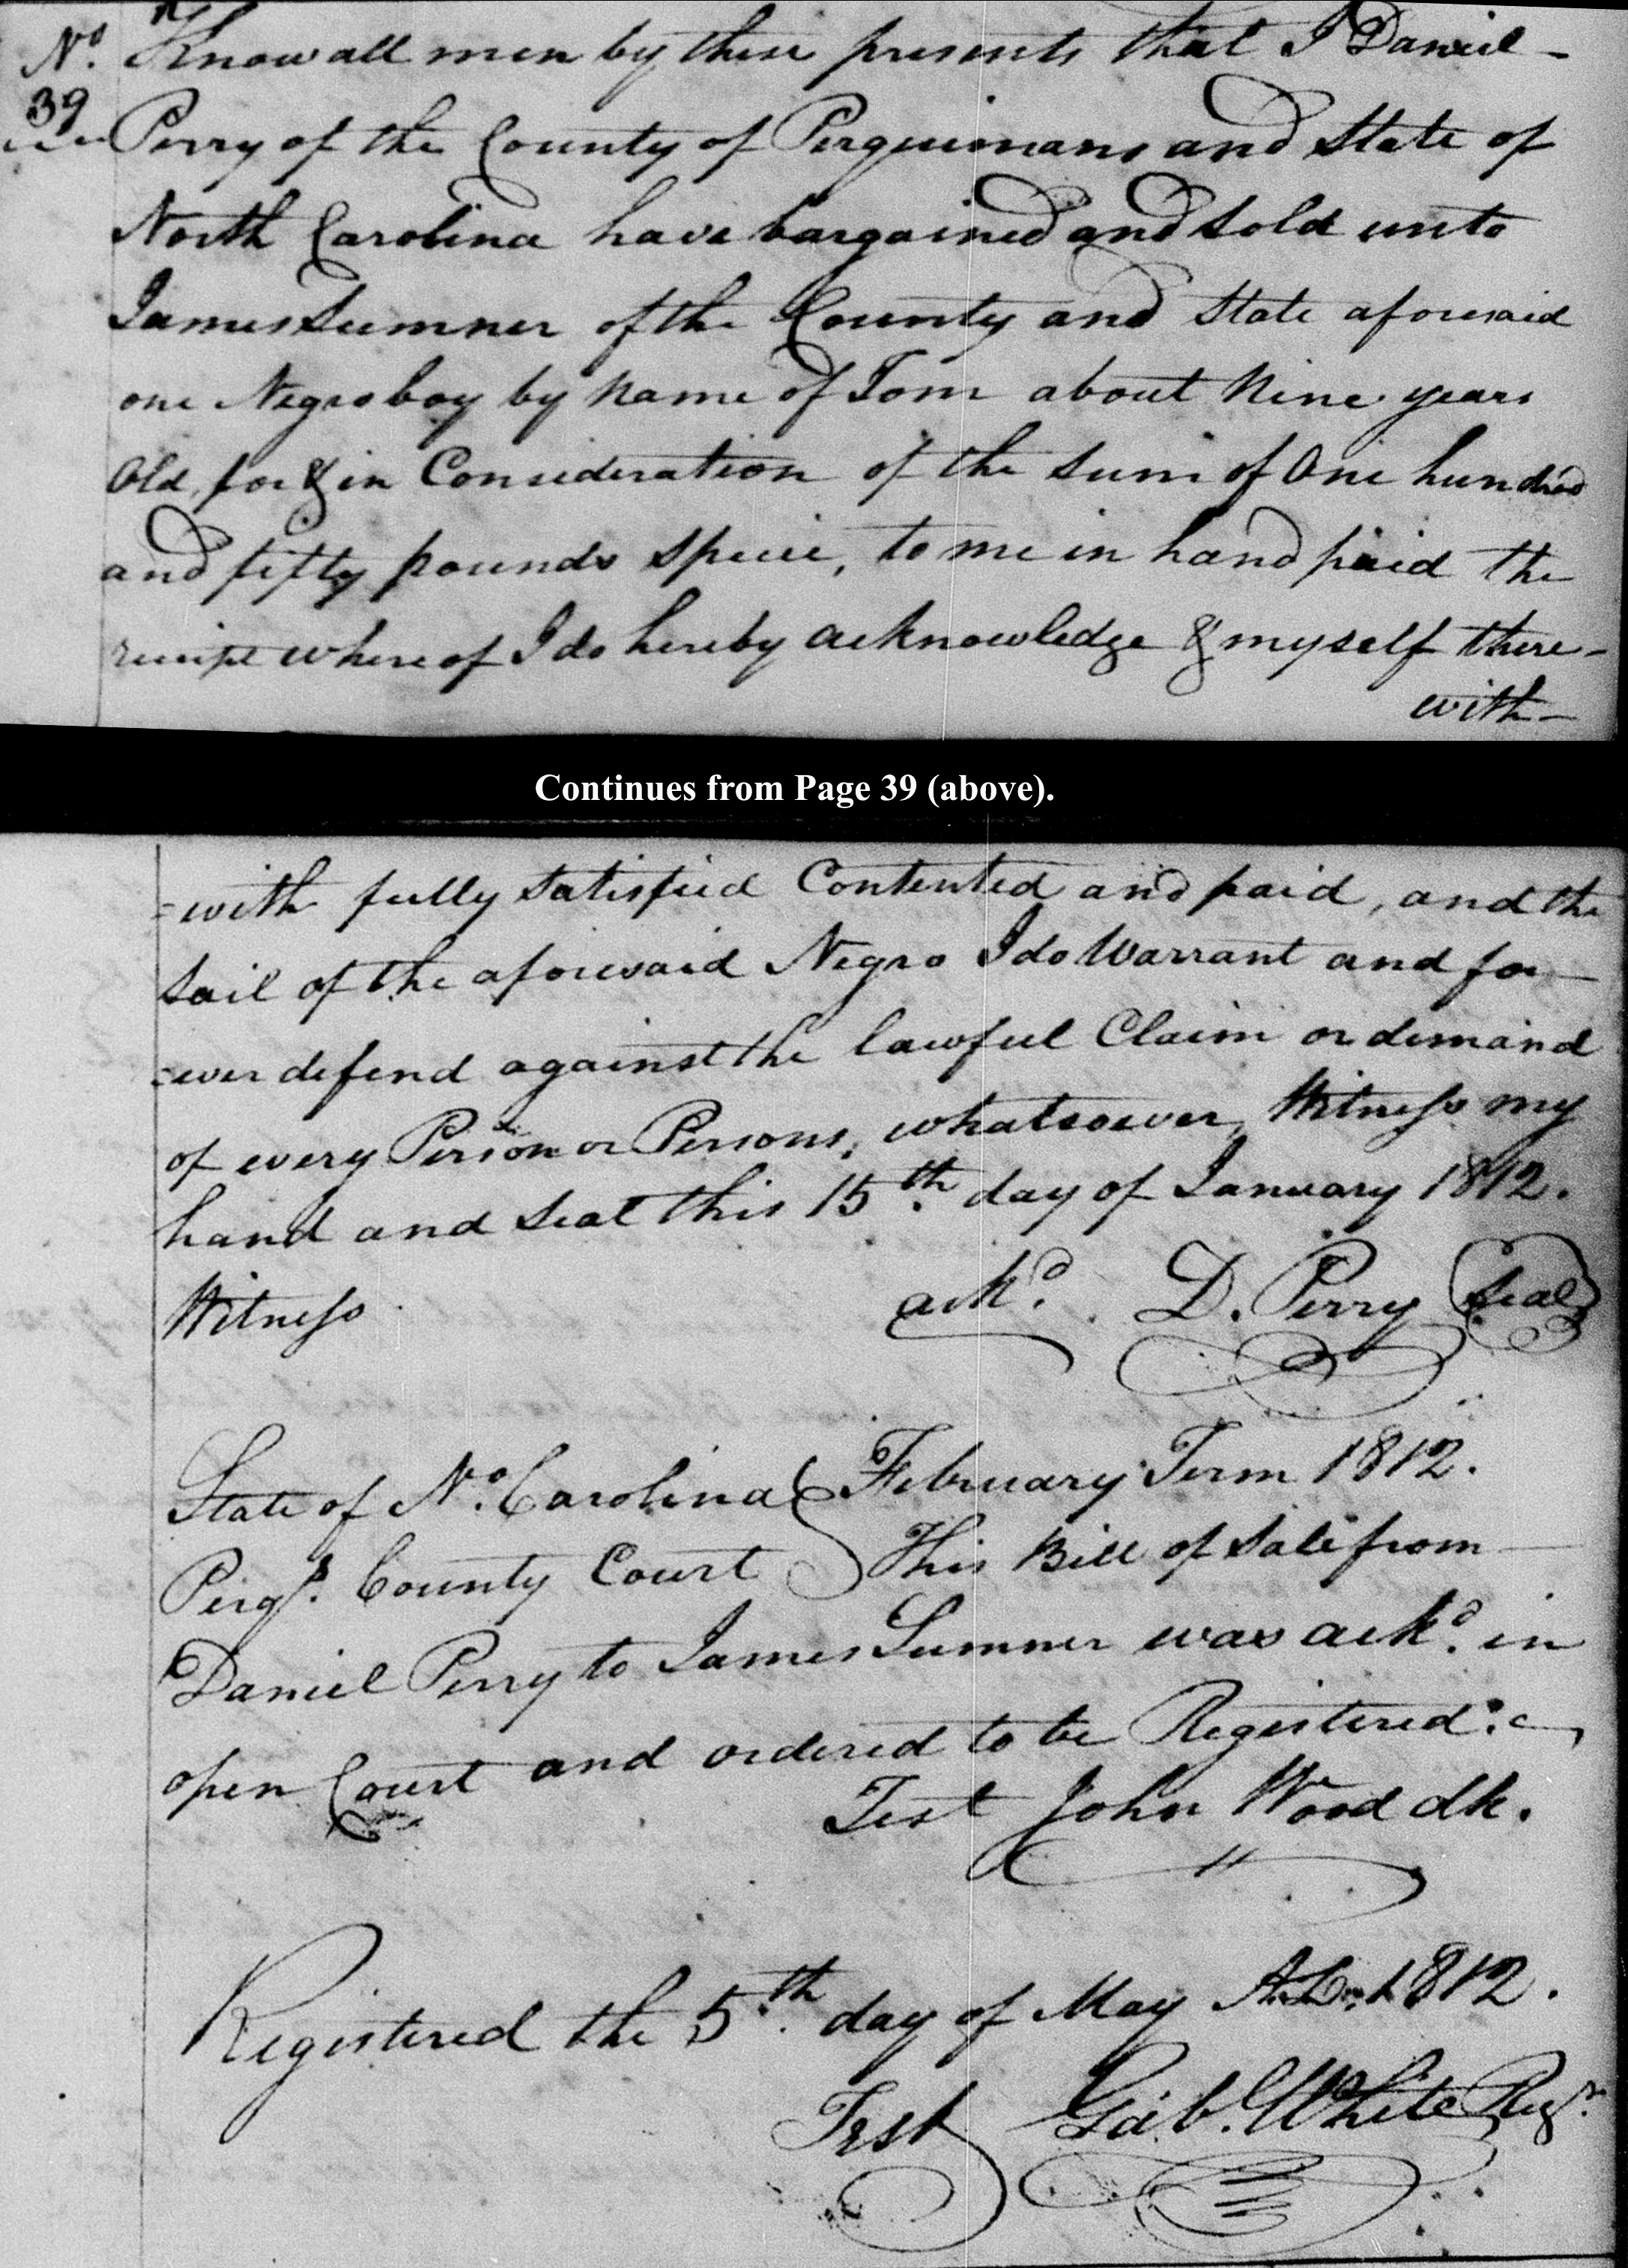 No. Know all men by these presents that I Daniel -
39 Perry of the County of Perquimans and State of
North Carolina have bargained and sold unto
James Sumner of the County and State aforesaid
one Negro boy by name of Tom about Nine years
Old, for & in Consideration of the sum of One hundred
and fifty pounds specie, to me in hand paid the
receipt where of I do hereby acknowledge & myself there-
with-
Continues from Page 39 (above).
=with fully satisfied Contented and paid, and the
sail of the aforesaid Negro I do Warrant and for-
=ever defend against the lawful Claim or demand
of every Person or Persons, whatsoever, Witness my
hand and seal this 15th. day of January 1812.
Witness ackd. D. Perry Seal
State of No. Carolina February Term 1812.
Perqs. County Court This Bill of Sale from
Daniel Perry to James Sumner was ackd. in
open Court and ordered to be Registered.
Test John Wood clk.
Registered the 5th. day of May A.D. 1812.
Test Gab. White Regr.